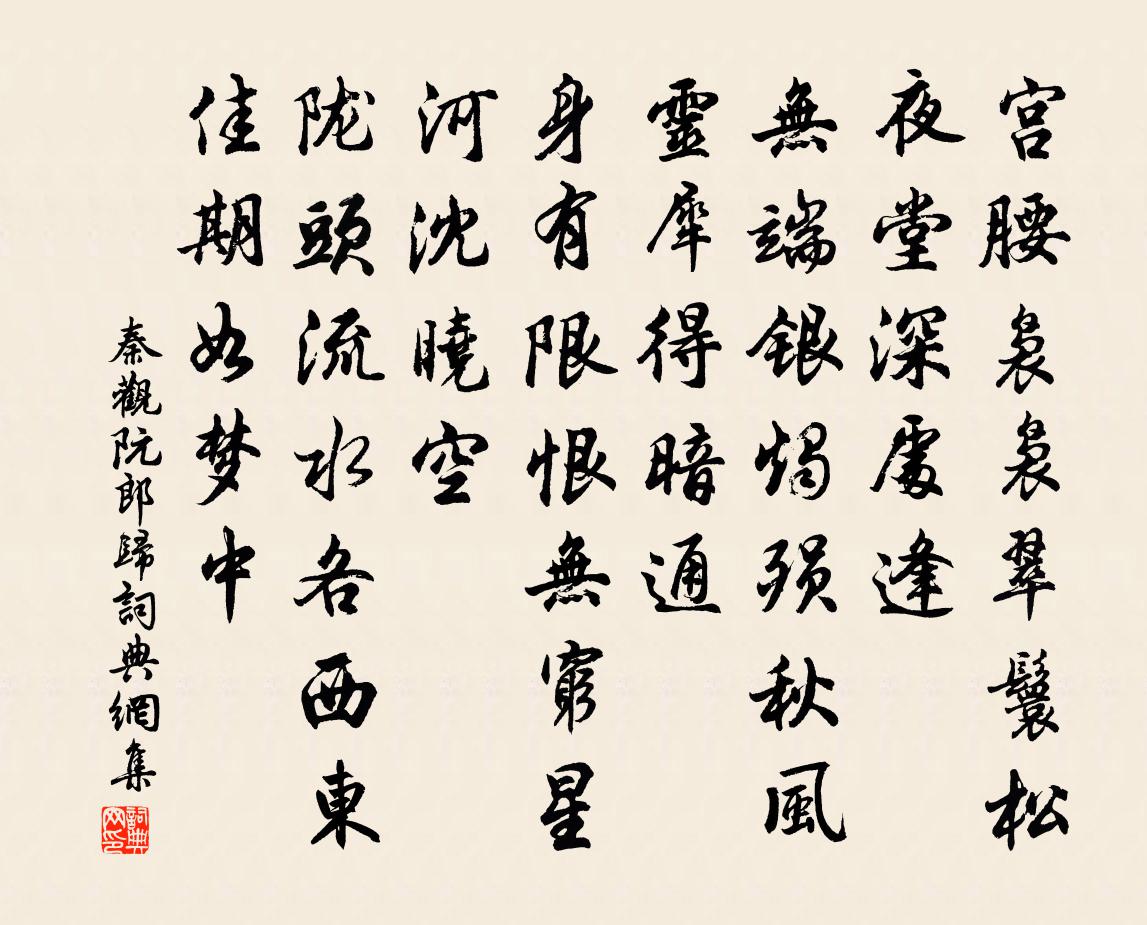 宫腰袅袅翠鬟松
夜堂深處逢
無端銀燭殞秋風
靈犀得暗通
身有限恨無窮星
河沈曉空
陇頭流水各西東
佳期如梦中
秦觀阮郎歸詞典網集
詞典网印